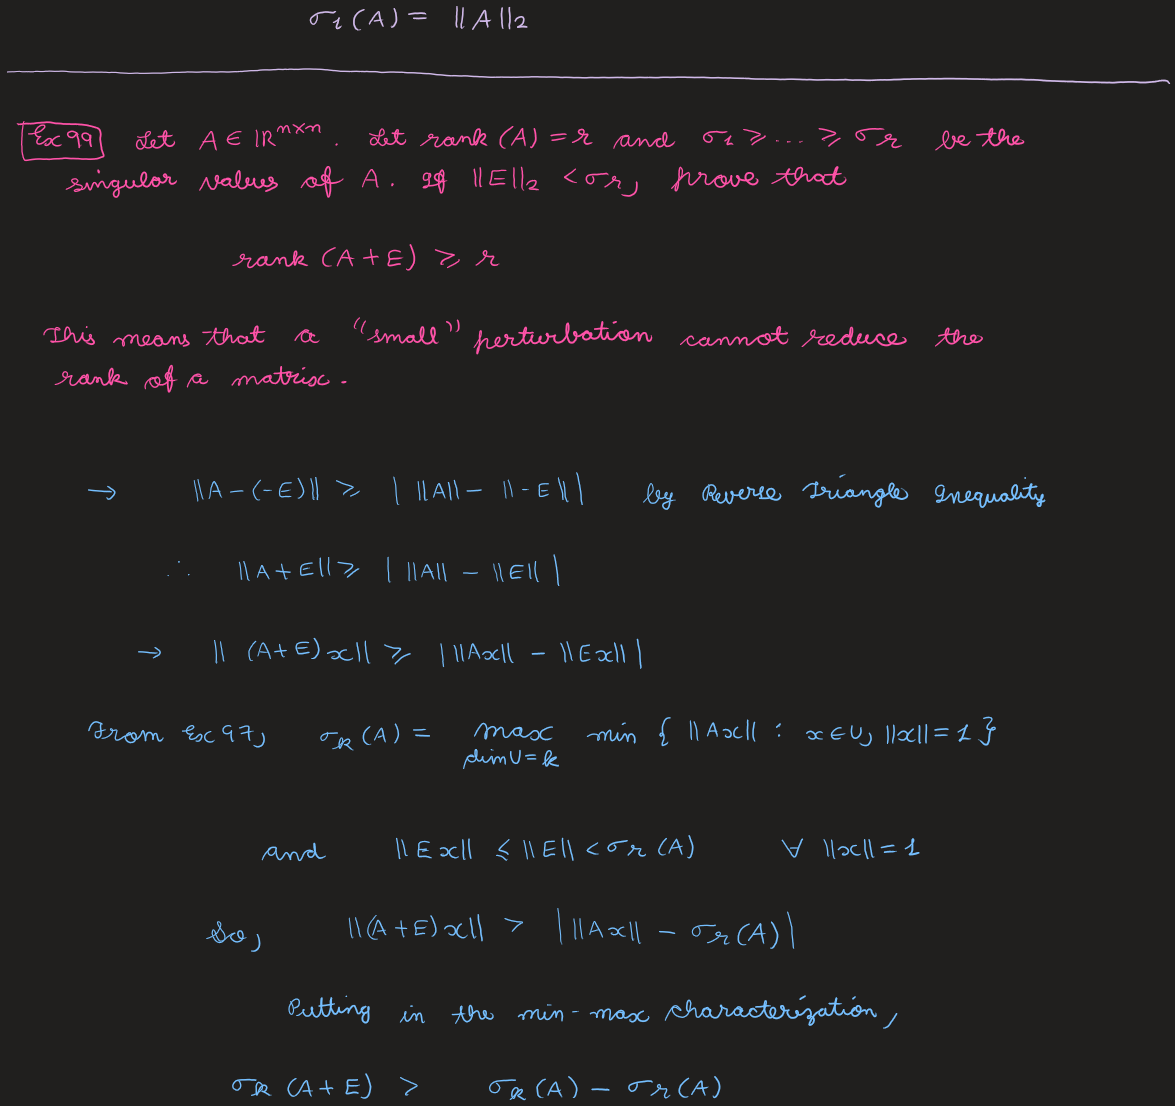 σ₁(A) = ||A||₂
Ex 99 Let A ∈ ℝ^{m×n}. Let rank (A) = r and σ₁ ≥ ... ≥ σᵣ be the
singular values of A. If ||E||₂ < σᵣ, prove that
rank (A + E) ≥ r
This means that a "small" perturbation cannot reduce the
rank of a matrix.
→ ||A - (-E)|| ≥ | ||A|| - ||-E|| | by Reverse Triangle Inequality
∴ ||A + E|| ≥ | ||A|| - ||E|| |
→ || (A + E) x|| ≥ | ||Ax|| - ||Ex|| |
From Ex 97, σₖ(A) = max min { ||Ax|| : x ∈ U, ||x|| = 1 }
dim U = k
and ||Ex|| ≤ ||E|| < σᵣ(A) ∀ ||x|| = 1
So, ||(A + E) x|| > | ||Ax|| - σᵣ(A) |
Putting in the min-max characterization,
σₖ (A + E) > σₖ(A) - σᵣ(A)